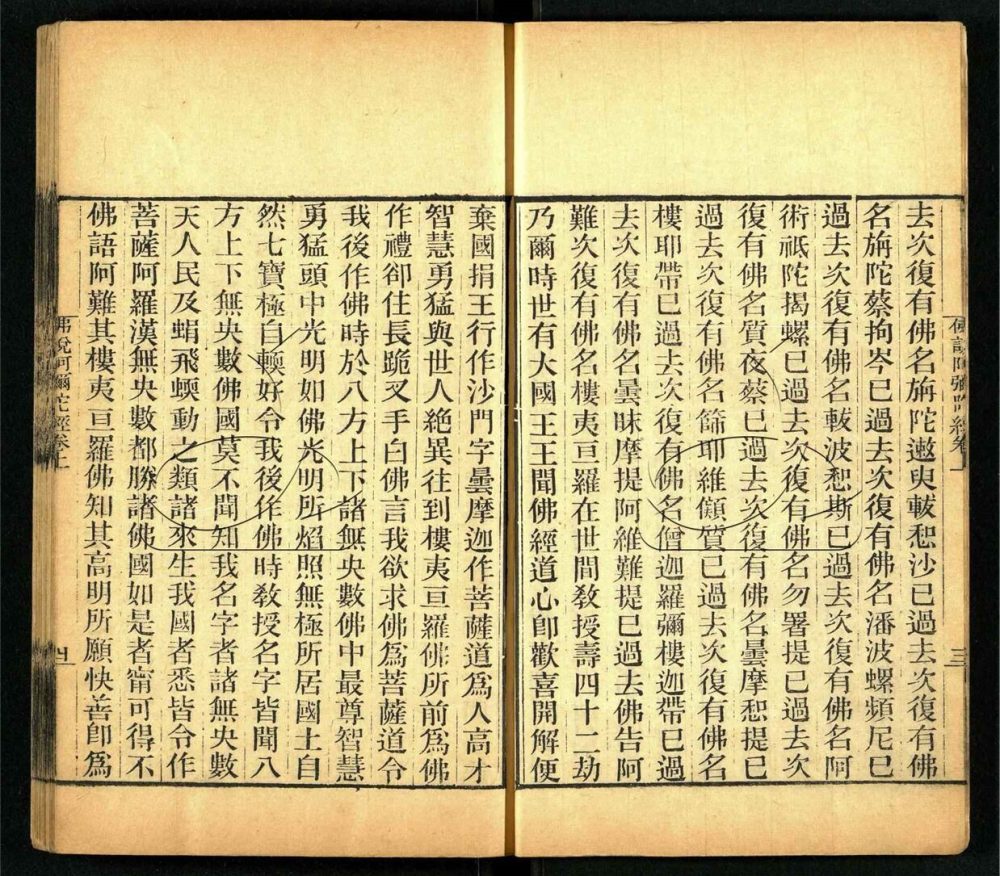 佛說阿彌陀經卷上
三
去次復有佛名旃陀遬臾𩎟恕沙已過去次復有佛
名旃陀蔡拘岑已過去次復有佛名潘波螺頻尼已
過去次復有佛名𩎟波恕斯已過去次復有佛名阿
術祇陀揭螺已過去次復有佛名勿署提已過去次
復有佛名質夜蔡已過去次復有佛名曇摩恕提已
過去次復有佛名篩耶維傎質已過去次復有佛名
樓耶帶已過去次復有佛名僧迦羅彌樓迦帶已過
去次復有佛名曇昧摩提阿維難提已過去佛告阿
難次復有佛名樓夷亘羅在世間敎授壽四十二劫
乃爾時世有大國王王聞佛經道心卽歡喜開解便
棄國捐王行作沙門字曇摩迦作菩薩道爲人高才
智慧勇猛與世人絕異往到樓夷亘羅佛所前爲佛
作禮卻住長跪叉手白佛言我欲求佛爲菩薩道令
我後作佛時於八方上下諸無央數佛中最尊智慧
勇猛頭中光明如佛光明所焰照無極所居國土自
然七寶極自輭好令我後作佛時敎授名字皆聞八
方上下無央數佛國莫不聞知我名字者諸無央數
天人民及蜎飛蝡動之類諸來生我國者悉皆令作
菩薩阿羅漢無央數都勝諸佛國如是者甯可得不
佛語阿難其樓夷亘羅佛知其高明所願快善卽爲
佛說阿彌陀經卷上
四